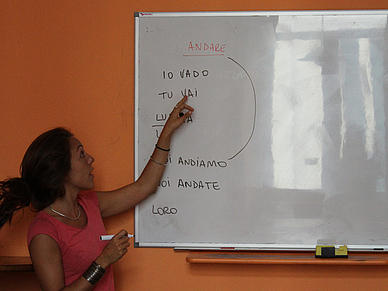 ANDARE
IO VADO
TU VAI
ANDIAMO
VOI ANDATE
LORO